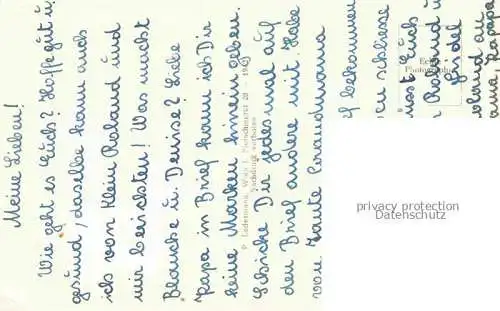 Meine Lieben!
Wie geht es Euch? Hoffe gut u.
gesund, dasselbe kann auch
ich von Klein Roland und
mir berichten! Was macht
Blanche u. Denise? Liebe
Papa in Brief kann ich Dir
keine Marken hinein geben.
Schicke Dir jedesmal auf
den Brief andere mit. Habe
von Tante
bekommen
schliesse
Euch
Roland u.
Papa
P. Ledermann, Wien I, Fleischmarkt 20
Nachdruck verboten
Echte
Photographie
privacy protection
Datenschutz